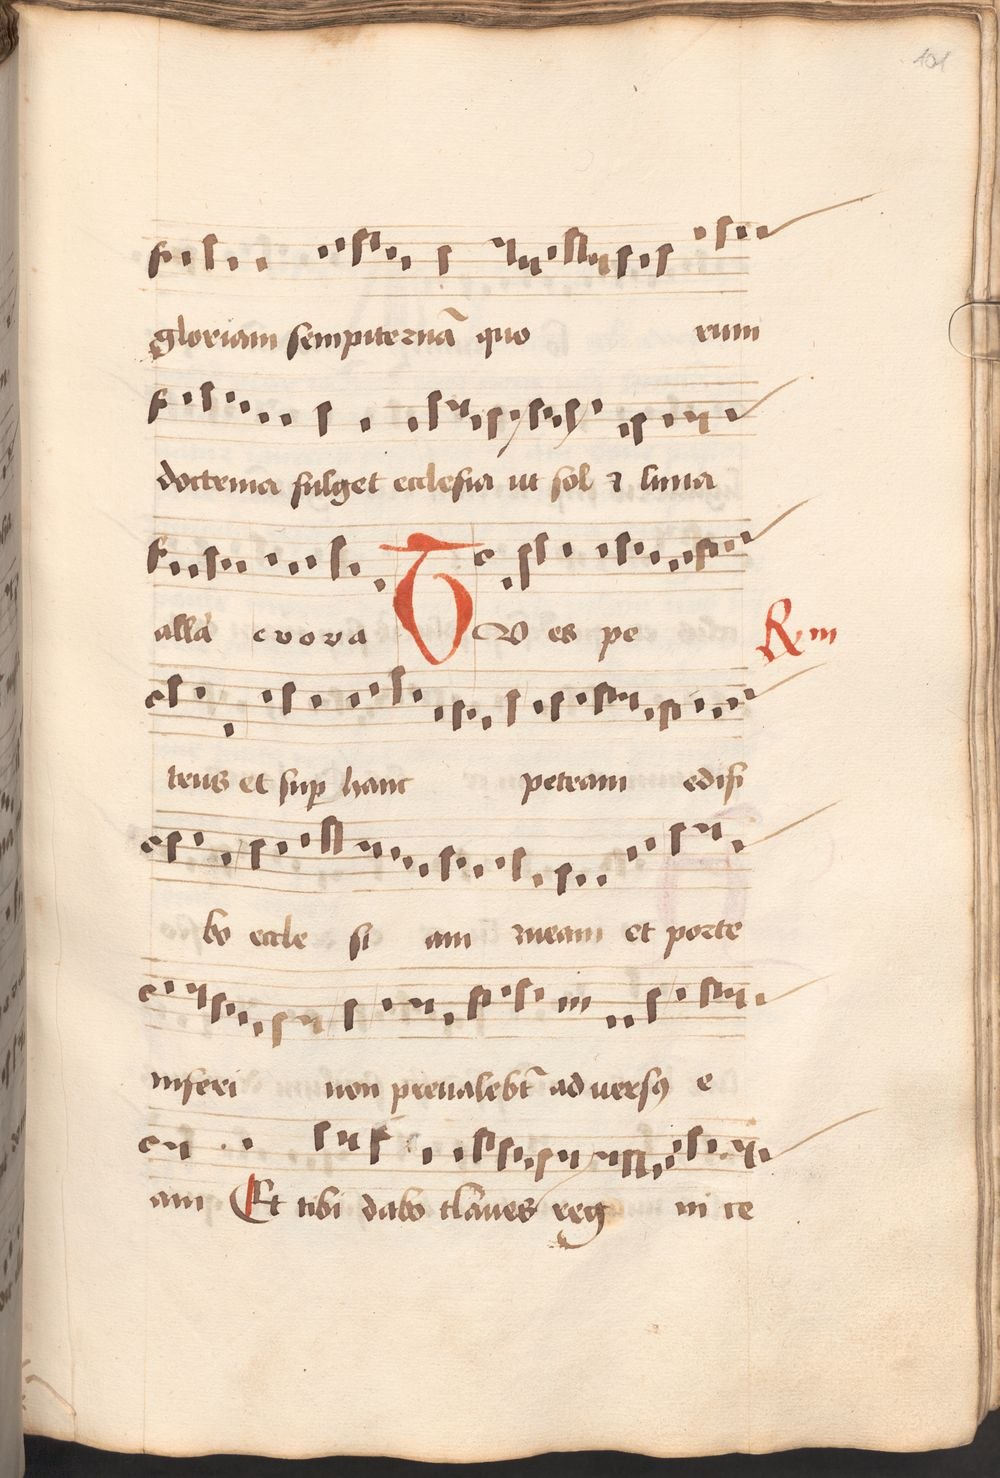 101
gloriam sempiternā quo rum
doctrina fulget ecclesia ut sol ⁊ luna
allā evova TV es pe R m
trus et sup hanc petram edifi
bo eccle si am meam et porte
inferi non prevalebt̄ adversꝰ e
am Et tibi dabo claves reg ni ce